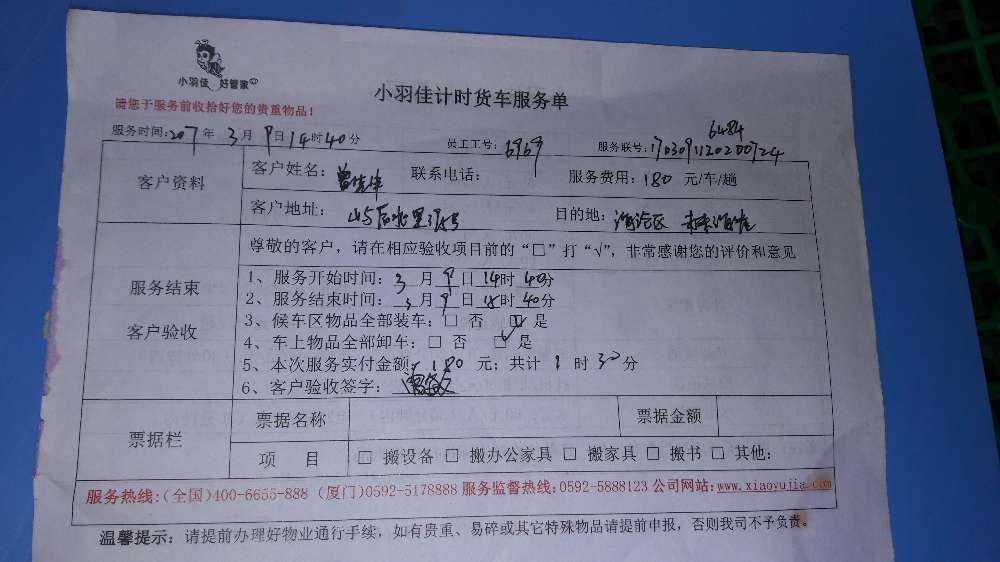 小羽佳 好管家
小羽佳计时货车服务单
请您于服务前收拾好您的贵重物品！
服务时间:2017年 3月 9日 14时 40分 员工工号: 6969 服务联号:
6484
客户资料
客户姓名: 联系电话: 服务费用: 180 元/车/趟
客户地址: 目的地: 海沧区
尊敬的客户，请在相应验收项目前的“□”打“√”，非常感谢您的评价和意见
服务结束
客户验收
1、服务开始时间: 3月 9日 14时 40分
2、服务结束时间: 3月 9日 时 40分
3、候车区物品全部装车: □ 否 □ 是
4、车上物品全部卸车: □ 否 □ 是
5、本次服务实付金额: 180 元; 共计 1 时 30 分
6、客户验收签字:
票据栏
票据名称 票据金额
项 目 □ 搬设备 □ 搬办公家具 □ 搬家具 □ 搬书 □ 其他:
服务热线:(全国)400-6655-888 (厦门)0592-5178888 服务监督热线:0592-5888123 公司网站:www.xiaoyujia.com
温馨提示: 请提前办理好物业通行手续，如有贵重、易碎或其它特殊物品请提前申报，否则我司不予负责。